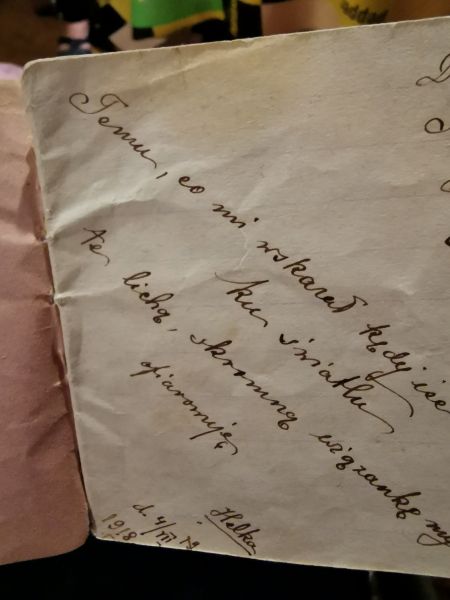 Temu, co mi wskazał kędy iść
ku światłu
tę lichą, skromną wiązankę
ofiaruję
Helka
d. 4/III 19
1918